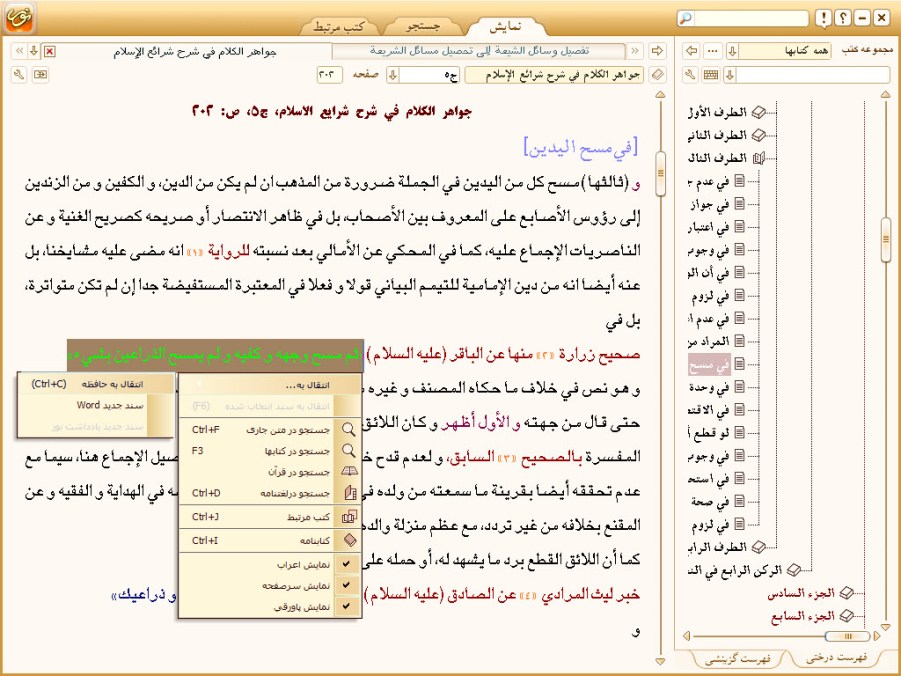 نمایش
جستجو
کتب مرتبط
مجموعه کتب
همه کتابها
تفصیل وسائل الشیعة إلی تحصیل مسائل الشریعة
جواهر الکلام في شرح شرائع الإسلام
جواهر الکلام في شرح شرائع الإسلام
ج۵
صفحه
۲۰۲
جواهر الكلام في شرح شرايع الاسلام، ج۵، ص: ۲۰۲
[في مسح اليدين]
و (ثالثها) مسح كل من اليدين في الجملة ضرورة من المذهب ان لم يكن من الدين، و الكفين و من الزندين
إلى رؤوس الأصابع على المعروف بين الأصحاب، بل في ظاهر الانتصار أو صريحه كصريح الغنية و عن
الناصريات الإجماع عليه، كما في المحكي عن الأمالي بعد نسبته للرواية «۱» انه مضى عليه مشايخنا، بل
عنه أيضا انه من دين الإمامية للتيمم البياني قولا و فعلا في المعتبرة المستفيضة جدا إن لم تكن متواترة،
بل في
صحيح زرارة «۲» منها عن الباقر (عليه السلام) «ثم مسح وجهه و كفيه و لم يمسح الذراعين بشي‌ء»
و هو نص في خلاف ما حكاه المصنف و غيره
حتى قال من جهته و الأول أظهر و كان اللائق
المفسرة بالصحيح «۳» السابق، و لعدم قدح
صيل الإجماع هنا، سيما مع
عدم تحققه أيضا بقرينة ما سمعته من ولده في
ه في الهداية و الفقيه و عن
المقنع بخلافه من غير تردد، مع عظم منزلة والده
كما أن اللائق القطع برد ما يشهد له، أو حمله على
خبر ليث المرادي «۴» عن الصادق (عليه السلام)
و ذراعيك»
و
انتقال به...
انتقال به سند انتخاب شده (F6)
جستجو در متن جاری Ctrl+F
جستجو در کتابها F3
جستجو در قرآن
جستجو درلغتنامه Ctrl+D
کتب مرتبط Ctrl+J
کتابنامه Ctrl+I
نمایش اعراب
نمایش سرصفحه
نمایش پاورقی
انتقال به حافظه (Ctrl+C)
سند جدید Word
سند جدید یادداشت نور
الطرف الأول
الطرف الثاني
الطرف الثالـ
في عدم جـ
في جواز
في اعتبار
في وجوب
في أن الو
في لزوم
في عدم اـ
المراد من
في مسح
في وحدة
في الاقتصـ
لو قطع
في وجوب
في استحـ
في صحة
في لزوم
الطرف الرابـ
الركن الرابع في
الجزء السادس
الجزء السابع
فهرست درختی
فهرست گزینشی